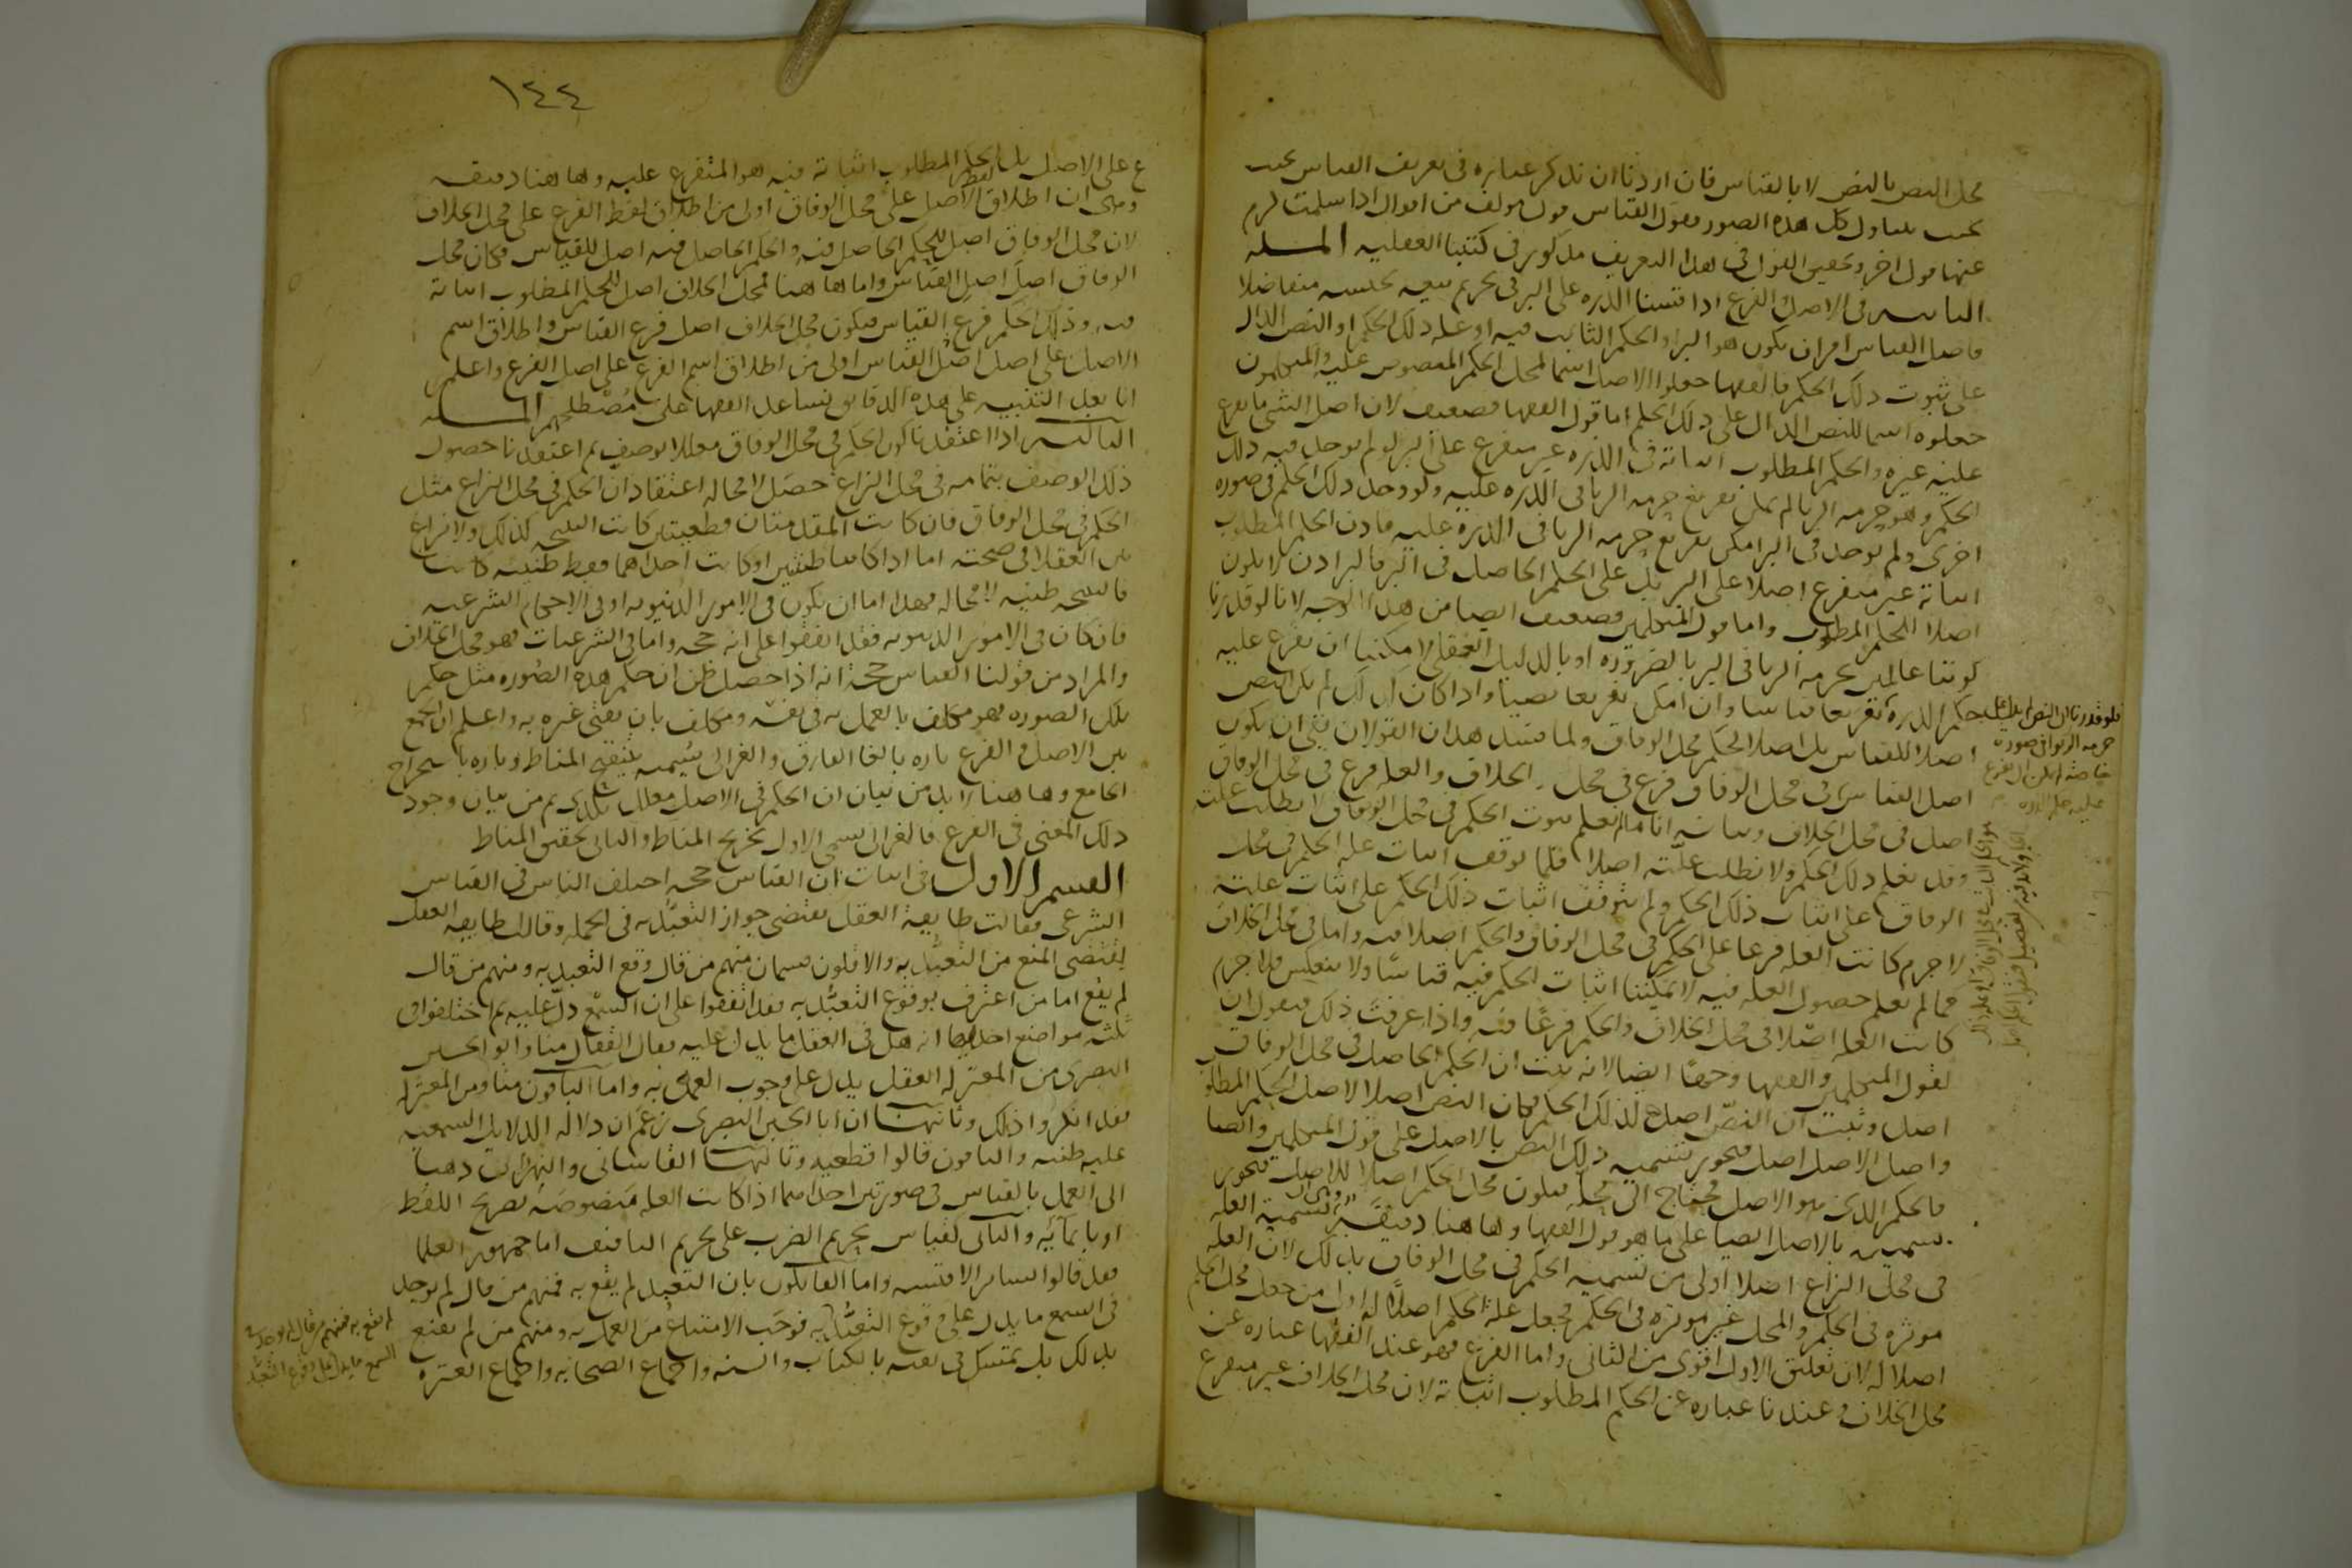 محل النص بالنص لا بالقياس فان اردنا ان نذكر عبارة في تعريف القياس بحيث
بحيث يتناول كل هذه الصور فنقول القياس قول مولف من اقوال اذا سلمت لزم
عنها قول اخر وتحقيق القول في هذا التعريف مذكور في كتبنا العقلية المسلة
الثانية في الاصل والفرع اذا قسنا الذرة على البر في تحريم بيعه بجنسه متفاضلا
فاصل القياس اما ان يكون هو البر او الحكم الثابت فيه او علة ذلك الحكم او النص الدال
على ثبوت ذلك الحكم فالفقها جعلوا الاصل اسما لمحل الحكم المنصوص عليه والمتكلمون
جعلوه اسما للنص الدال على ذلك الحكم اما قول الفقها فضعيف لان اصل الشي ما تفرع
عليه غيره والحكم المطلوب اثباته في الذرة غير متفرع على البر لو لم يوجد فيه ذلك
الحكم وهو حرمة الربا لم يمكن تفريع حرمة الربا في الذرة عليه ولو وجد ذلك الحكم في صورة
اخرى ولم يوجد في البر امكن تفريع حرمة الربا في الذرة عليه فاذن الحكم المطلوب
اثباته غير متفرع اصلا على البر بل على الحكم الحاصل في البر فالبر اذن لا يكون
اصلا للحكم المطلوب واما قول المتكلمين فضعيف ايضا من هذا الوجه لانا لو قدرنا
كوننا عالمين بحرمة الربا في البر بالضرورة او بالدليل العقلي لامكننا ان نفرع عليه
حكم الذرة تفريعا قياسا وان امكن تفريعا نصيا واذا كان كذلك لم يكن النص
اصلا للقياس بل اصلا لحكم محل الوفاق ولما فسد هذان القولان بقي ان يكون
اصل القياس في محل الوفاق فرع في محل الخلاف والعلة فرع في محل الوفاق
اصل في محل الخلاف وبيانه انا ما لم نعلم ثبوت الحكم في محل الوفاق لا نطلب علته
وقد نعلم ذلك الحكم ولا نطلب علته اصلا فلما توقف اثبات علة الحكم في محل
الوفاق على اثبات ذلك الحكم ولم يتوقف اثبات ذلك الحكم على اثبات علته
لا جرم كانت العلة فرعا على الحكم في محل الوفاق والحكم اصلا فيه واما في محل الخلاف
فما لم نعلم حصول العلة فيه لا يمكننا اثبات الحكم فيه قياسا ولا ينعكس فلا جرم
كانت العلة اصلا في محل الخلاف والحكم فرعا فيه واذا عرفت ذلك فنقول ان
لقول المتكلمين والفقها وجها ايضا لانه ثبت ان الحكم الحاصل في محل الوفاق
اصل وثبت ان النص اصل لذلك الحكم فكان النص اصلا لاصل الحكم المطلوب
واصل الاصل اصل فيجوز تسمية ذلك النص بالاصل على قول المتكلمين وايضا
فالحكم الذي هو الاصل محتاج الى محله فيكون محل الحكم اصلا للاصل فيجوز
تسميته بالاصل ايضا على ما هو قول الفقها وهاهنا دقيقة وهي ان تسمية العلة
في محل النزاع اصلا اولى من تسمية الحكم في محل الوفاق بذلك لان العلة
موثرة في الحكم والمحل غير موثرة في الحكم فجعل علة الحكم اصلا له اولى من جعل محل الحكم
اصلا له لان تعلق الاول اقوى من الثاني واما الفرع فهو عند الفقها عبارة عن
محل الخلاف وعندنا عبارة عن الحكم المطلوب اثباته لان محل الخلاف غير متفرع
فلو قدرنا ان النص لم يدل على
حرمة الربوا في صورة
خاصة لم يمكن ان نفرع
عليه حكم الذرة
١٤٤
ع على الاصل بل الحكم المطلوب اثباته فيه هو المتفرع عليه وهاهنا دقيقة
وهي ان اطلاق لفظ الاصل على محل الوفاق اولى من اطلاق لفظ الفرع على محل الخلاف
لان محل الوفاق اصل للحكم الحاصل فيه والحكم الحاصل فيه اصل للقياس فكان محل
الوفاق اصل اصل القياس واما هاهنا فمحل الخلاف اصل للحكم المطلوب اثباته
فيه وذلك الحكم فرع القياس فيكون محل الخلاف اصل فرع القياس واطلاق اسم
الاصل على اصل اصل القياس اولى من اطلاق اسم الفرع على اصل الفرع واعلم
انا بعد التنبيه على هذه الدقايق نساعد الفقها على مصطلحهم المسلة
الثالثة اذا اعتقدنا كون الحكم في محل الوفاق معللا بوصف ثم اعتقدنا حصول
ذلك الوصف بتمامه في محل النزاع حصل لا محالة اعتقاد ان الحكم في محل النزاع مثل
الحكم في محل الوفاق فان كانت المقدمتان قطعيتين كانت النتيجة كذلك ولا نزاع
بين العقلا في صحته اما اذا كانتا ظنيتين او كانت احداهما فقط ظنية كانت
فالنتيجة ظنية لا محالة فهذا اما ان يكون في الامور الدنيوية او في الاحكام الشرعية
فان كان في الامور الدنيوية فقد اتفقوا على انه حجة واما في الشرعيات فهو محل الخلاف
والمراد من قولنا القياس حجة انه اذا حصل ظن ان حكم هذه الصورة مثل حكم
تلك الصورة فهو مكلف بالعمل به في نفسه ومكلف بان يفتي غيره به واعلم ان الجمع
بين الاصل والفرع تارة بالغا الفارق والغزالي يسميه تنقيح المناط وتارة باستخراج
الجامع وهاهنا لا بد من بيان ان الحكم في الاصل معلل بكذى ثم من بيان وجود
ذلك المعنى في الفرع فالغزالي يسمي الاول تخريج المناط والثاني تحقيق المناط
القسم الاول في اثبات ان القياس حجة اختلف الناس في القياس
الشرعي فقالت طايفة العقل يقتضي جواز التعبد به في الجملة وقالت طايفة العقل
يقتضي المنع من التعبد به والاولون قسمان منهم من قال وقع التعبد به ومنهم من قال
لم يقع اما من اعترف بوقوع التعبد به فقد اتفقوا على ان السمع دل عليه ثم اختلفوا في
ثلثة مواضع احدها انه هل في العقل ما يدل عليه فقال القفال منا وابو الحسين
البصري من المعتزلة العقل يدل على وجوب العمل به واما الباقون منا ومن المعتزلة
فقد انكروا ذلك وثانيها ان ابا الحسين البصري زعم ان دلالة الدلايل السمعية
عليه ظنية والباقون قالوا قطعية وثالثها القاساني والنهرواني ذهبا
الى العمل بالقياس في صورتين احداهما اذا كانت العلة منصوصة بصريح اللفظ
او بايمائه والثاني كقياس تحريم الضرب على تحريم التافيف اما جمهور العلما
فقد قالوا بساير الاقيسة واما القايلون بان التعبد لم يقع به فمنهم من قال لم يوجد
في السمع ما يدل على وقوع التعبد به فوجب الامتناع من العمل به ومنهم من لم يقنع
بذلك بل تمسك في نفيه بالكتاب والسنة واجماع الصحابة واجماع العترة
لم يقع به فمنهم من قال لم يوجد في
السمع ما يدل على وقوع التعبد